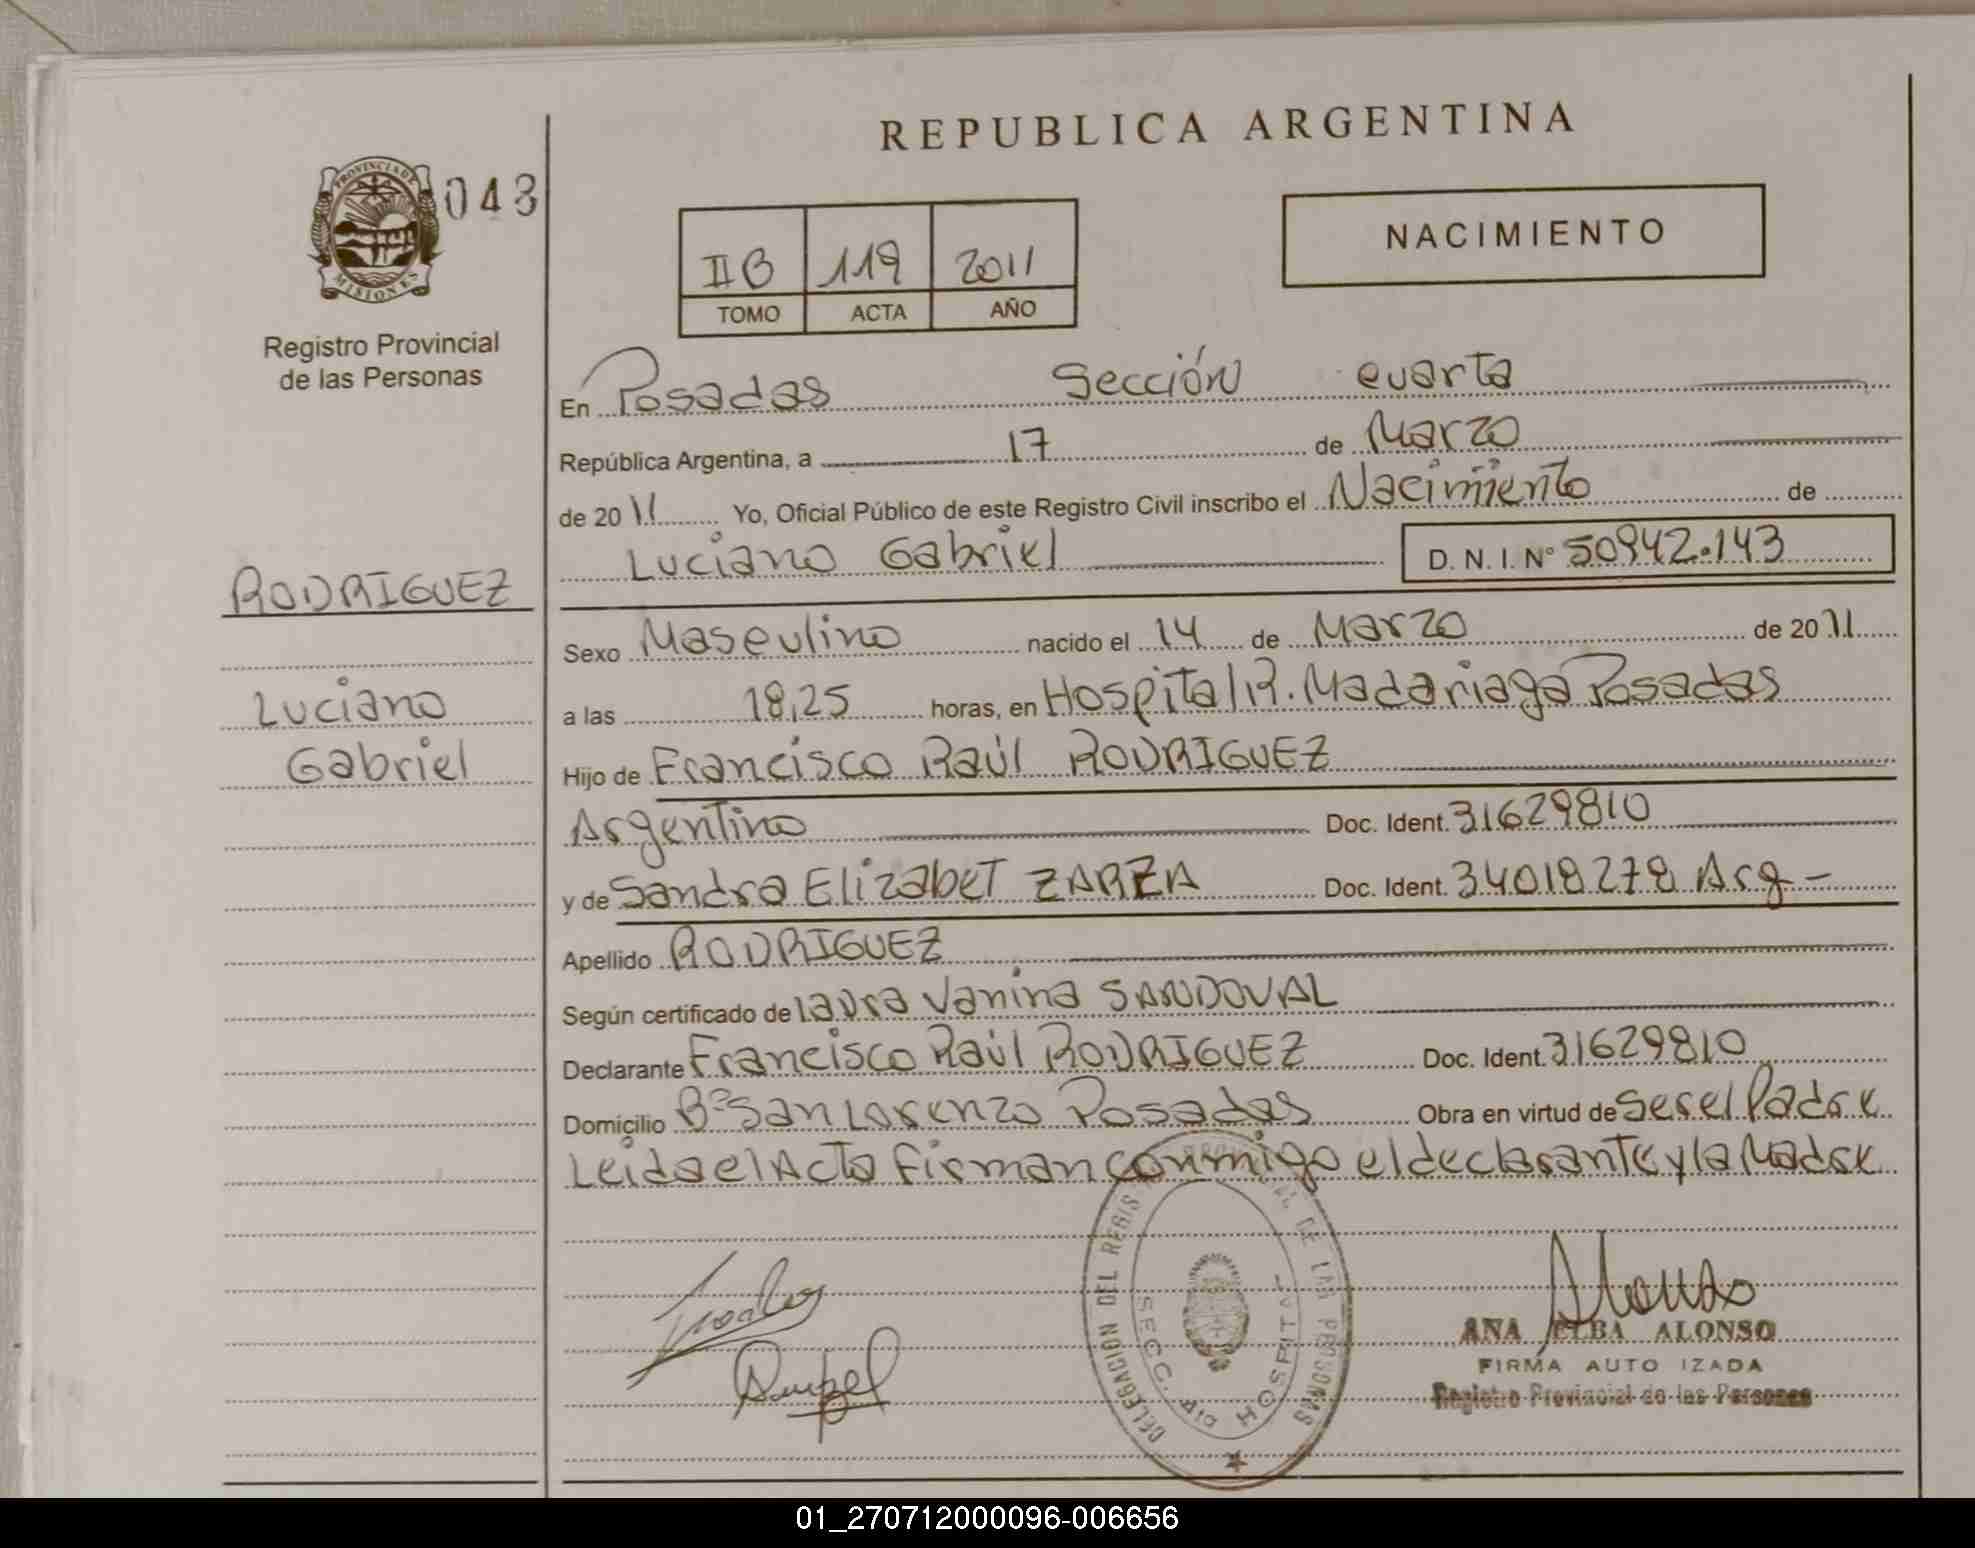 REPUBLICA ARGENTINA
PROVINCIA DE MISIONES
043
NACIMIENTO
II B 119 2011
TOMO ACTA AÑO
Registro Provincial
de las Personas
En Posadas Sección cuarta
República Argentina, a 17 de Marzo
de 2011 Yo, Oficial Público de este Registro Civil inscribo el Nacimiento de
Luciano Gabriel D. N. I. Nº 50942.143
RODRIGUEZ
Luciano
Gabriel
Sexo Masculino nacido el 14 de Marzo de 2011
a las 18,25 horas, en Hospital R. Madariaga Posadas
Hijo de Francisco Raúl RODRIGUEZ
Argentino Doc. Ident. 31629810
y de Sandra Elizabet ZARZA Doc. Ident. 34018278 Arg -
Apellido RODRIGUEZ
Según certificado de Laura Vanina SANDOVAL
Declarante Francisco Raúl RODRIGUEZ Doc. Ident. 31629810
Domicilio Bº San Lorenzo Posadas Obra en virtud de ser el Padre
Leida el Acta Firman conmigo el declarante y la Madre
DELEGACIÓN DEL REGIS DE LAS PERSONAS
SECC. 4ta HOSPITAL
ANA ELBA ALONSO
FIRMA AUTO IZADA
Registro Provincial de las Personas
01_270712000096-006656